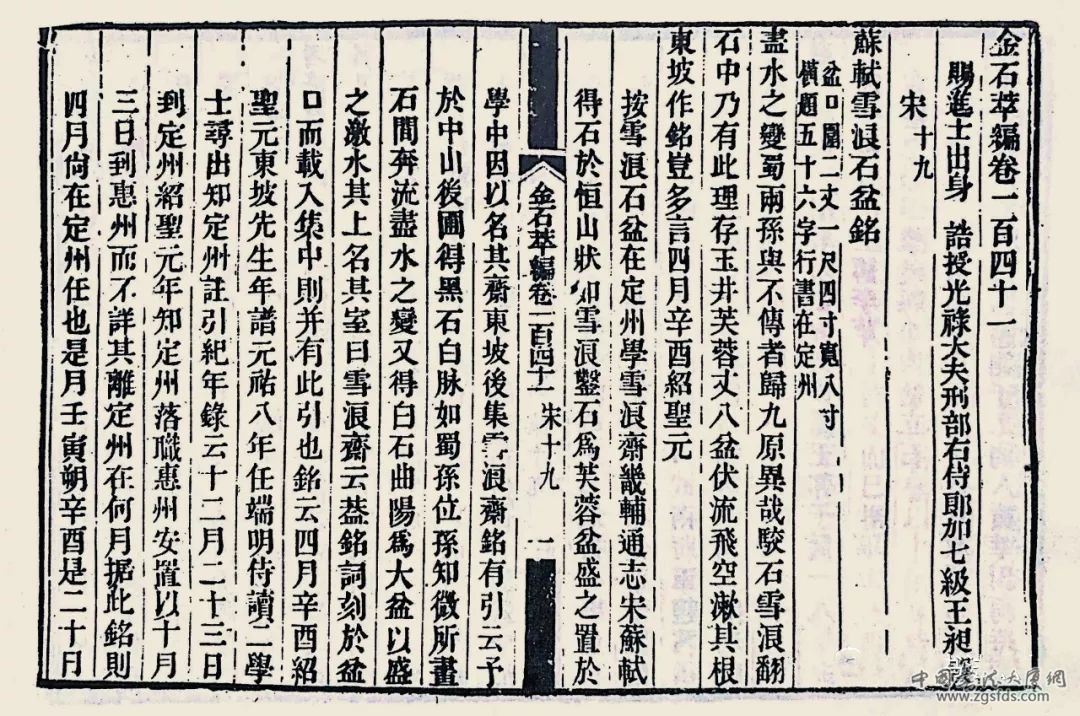 金石萃編卷一百四十一
賜進士出身 誥授光祿大夫刑部右侍郎加七級王昶譔
宋十九
蘇軾雪浪石盆銘
盆口圍二丈一尺四寸寬八寸
橫題五十六字行書在定州
盡水之變蜀兩孫與不傳者歸九原異哉駁石雪浪翻
石中乃有此理存玉井芙蓉丈八盆伏流飛空漱其根
東坡作銘豈多言四月辛酉紹聖元
按雪浪石盆在定州學雪浪齋畿輔通志宋蘇軾
得石於恒山狀如雪浪鑿石爲芙蓉盆盛之置於
金石萃編卷一百四十一 宋十九 一
學中因以名其齋東坡後集雪浪齋銘有引云予
於中山後圃得黑石白脉如蜀孫位孫知微所畫
石間奔流盡水之變又得白石曲陽爲大盆以盛
之激水其上名其室曰雪浪齋云葢銘詞刻於盆
口而載入集中則并有此引也銘云四月辛酉紹
聖元東坡先生年譜元祐八年任端明侍讀二學
士尋出知定州註引紀年錄云十二月二十三日
到定州紹聖元年知定州落職惠州安置以十月
三日到惠州而不詳其離定州在何月据此銘則
四月尙在定州任也是月壬寅朔辛酉是二十日
www.zgsfds.com